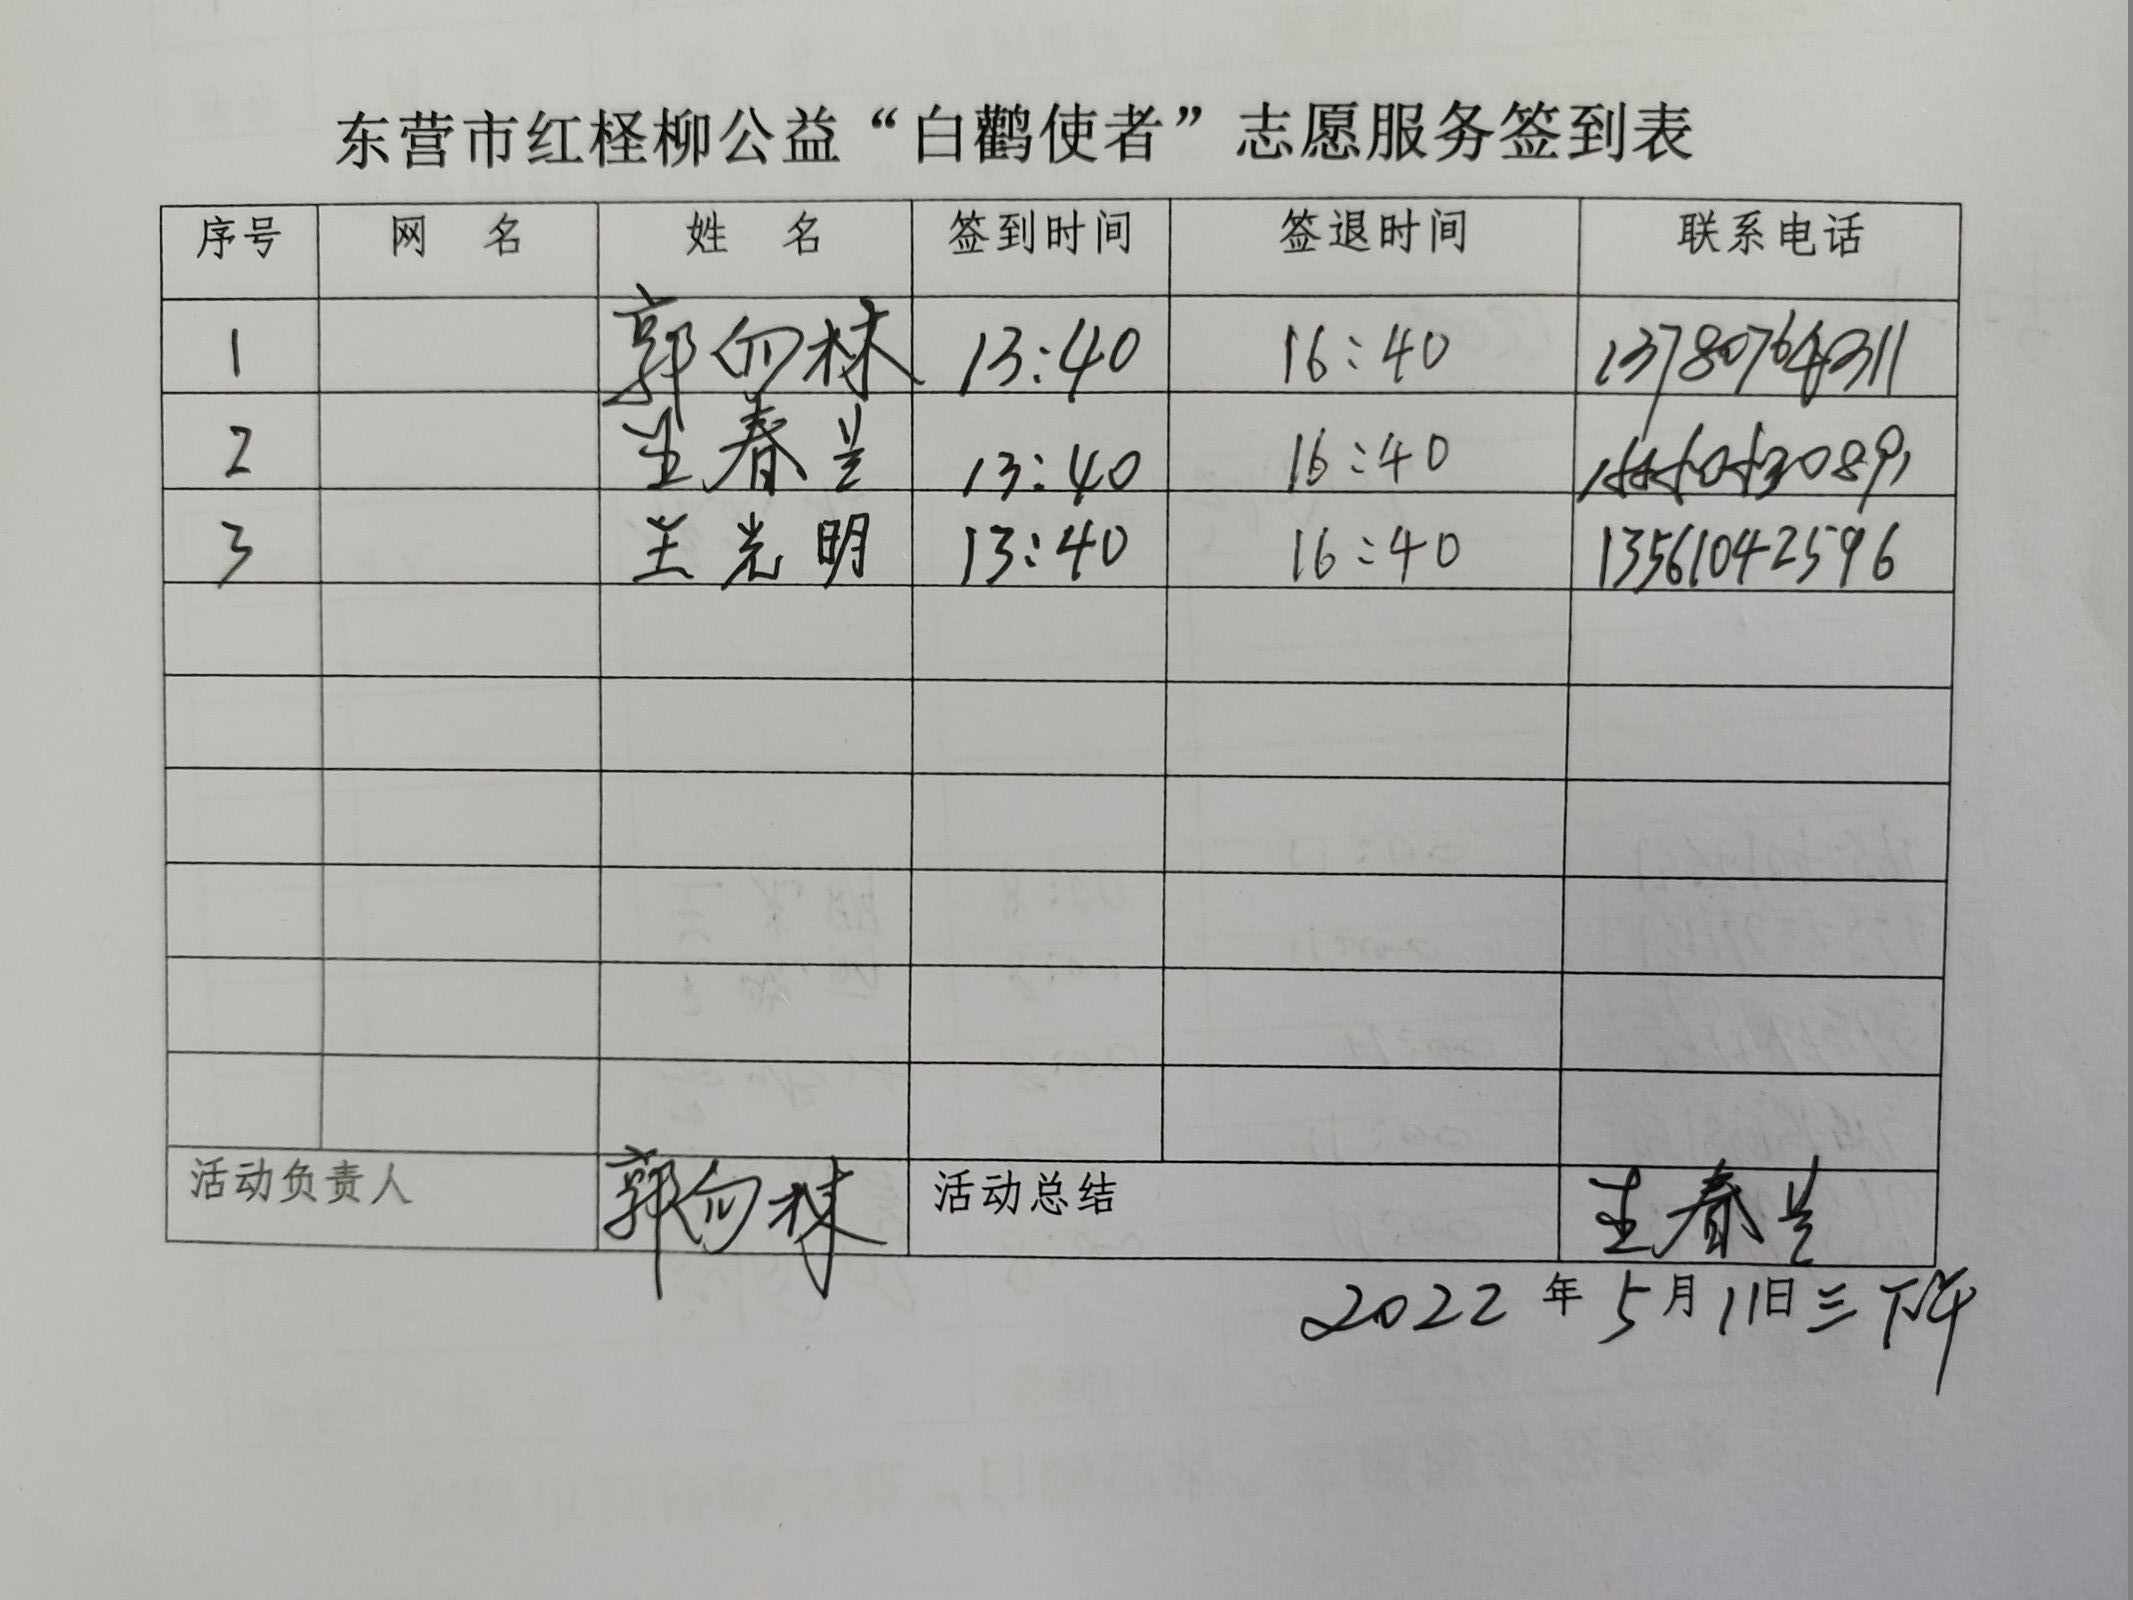 东营市红柽柳公益“白鹳使者”志愿服务签到表
序号 网 名 姓 名 签到时间 签退时间 联系电话
1 郭向林 13:40 16:40 13780764311
2 王春兰 13:40 16:40
3 王光明 13:40 16:40 13561042596
活动负责人 郭向林 活动总结 王春兰
2022年5月11日三下午